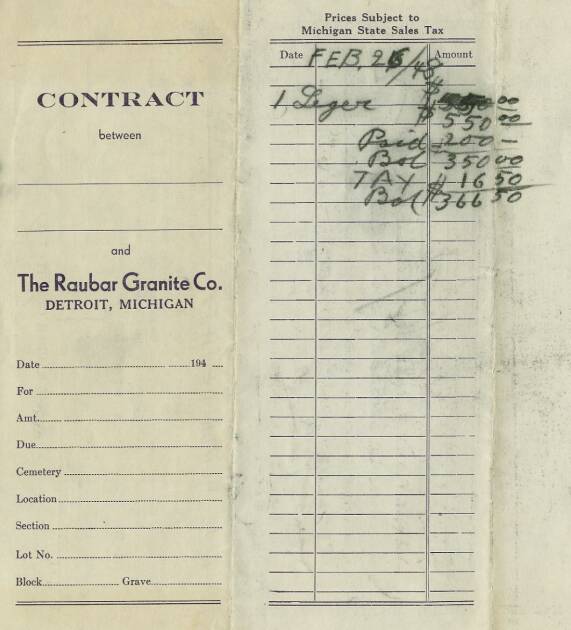 CONTRACT
between
and
The Raubar Granite Co.
DETROIT, MICHIGAN
Date 194
For
Amt.
Due
Cemetery
Location
Section
Lot No.
Block Grave
Prices Subject to
Michigan State Sales Tax
Date Amount
FEB, 26/48
1, Leger
$ 550 00
Paid 200 —
Bal 350 00
TAX $ 16 50
Bal $ 366 50